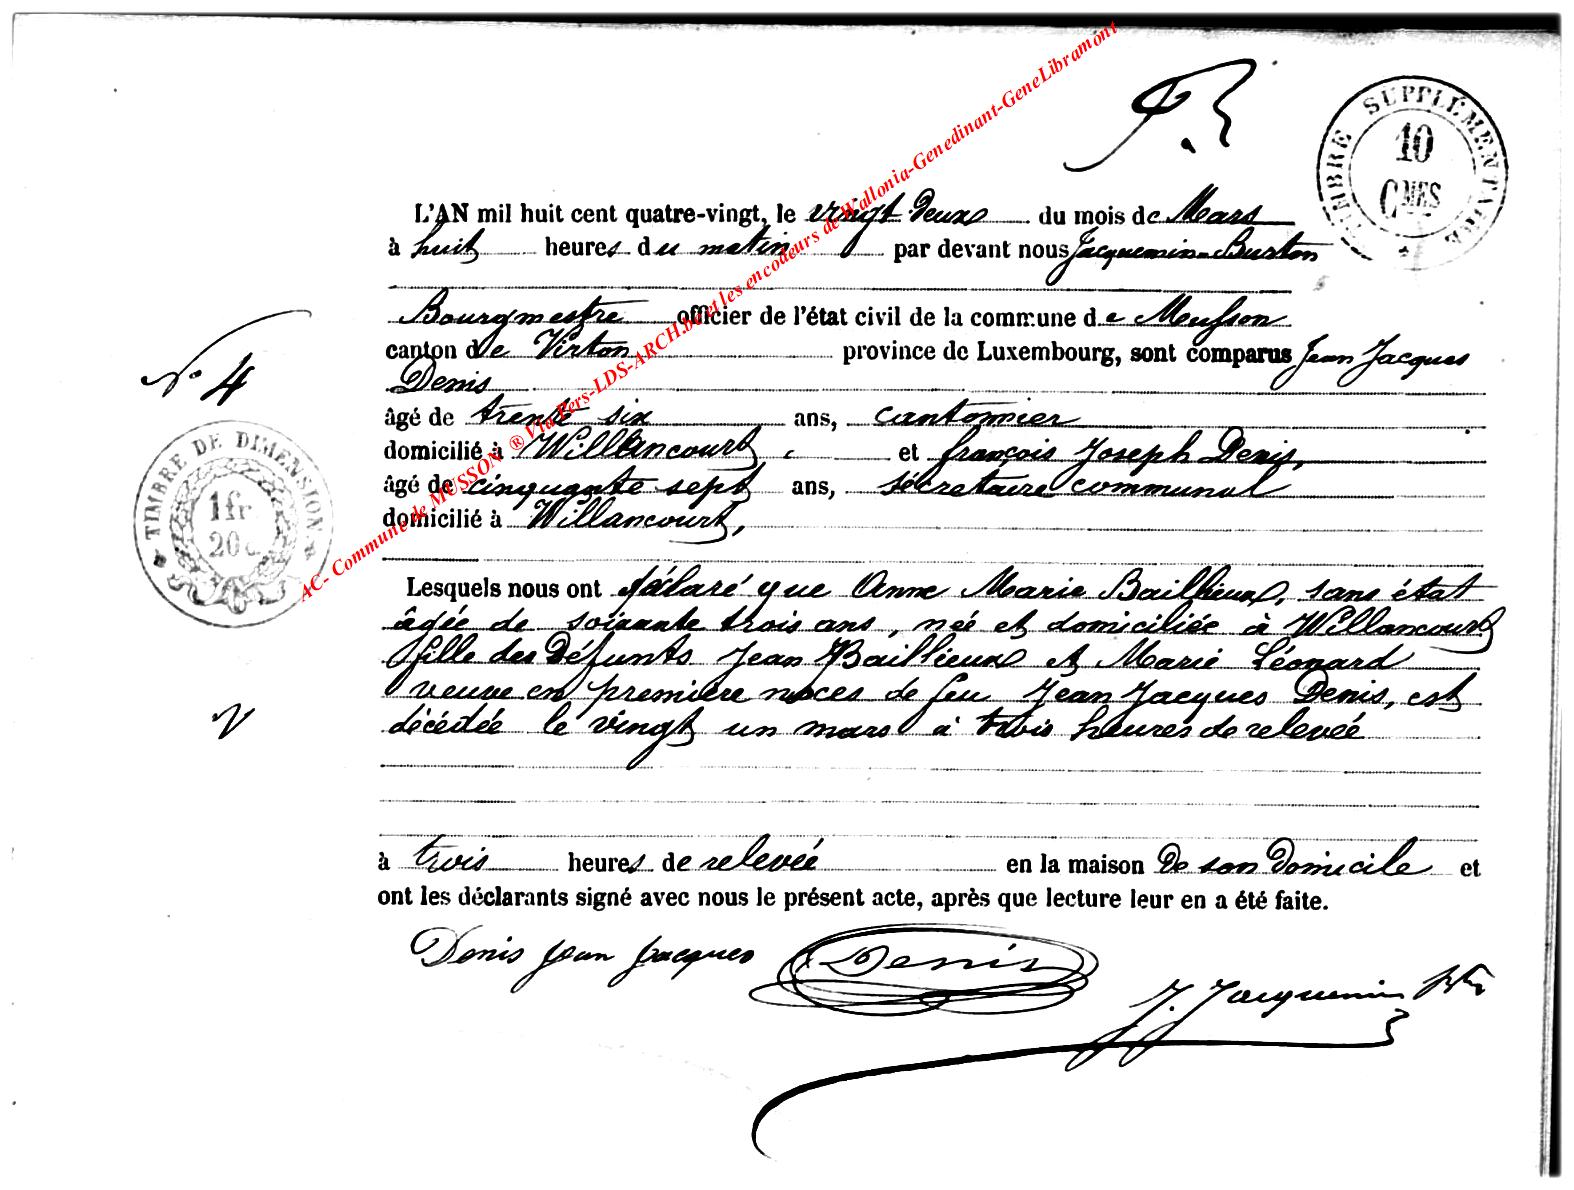 TIMBRE SUPPLÉMENTAIRE
10
CMES
L'AN mil huit cent quatre-vingt, le vingt deux du mois de Mars
à huit heures du matin par devant nous Jacquemin-Burton
Bourgmestre officier de l'état civil de la commune de Musson
canton de Virton province de Luxembourg, sont comparus Jean Jacques
Denis
âgé de trente six ans, cantonnier
domicilié à Willancourt, et françois Joseph Denis,
âgé de cinquante sept ans, sécretaire communal
domicilié à Willancourt,
N° 4
TIMBRE DE DIMENSION
1fr
20c
Lesquels nous ont déclaré que Anne Marie Baillieux, sans état
âgée de soixante trois ans, née et domiciliée à Willancourt
fille des Défunts Jean Baillieux et Marie Léonard
veuve en première noces de feu Jean Jacques Denis, est
décédée le vingt un mars à trois heures de relevée
à trois heures de relevée en la maison De son Domicile et
ont les déclarants signé avec nous le présent acte, après que lecture leur en a été faite.
Denis Jean Jacques Denis
J. Jacquemin
AC- Commune de MUSSON ® Via Fers-LDS-ARCH.be et les encodeurs de Wallonia-Genedinant-GeneLibramont